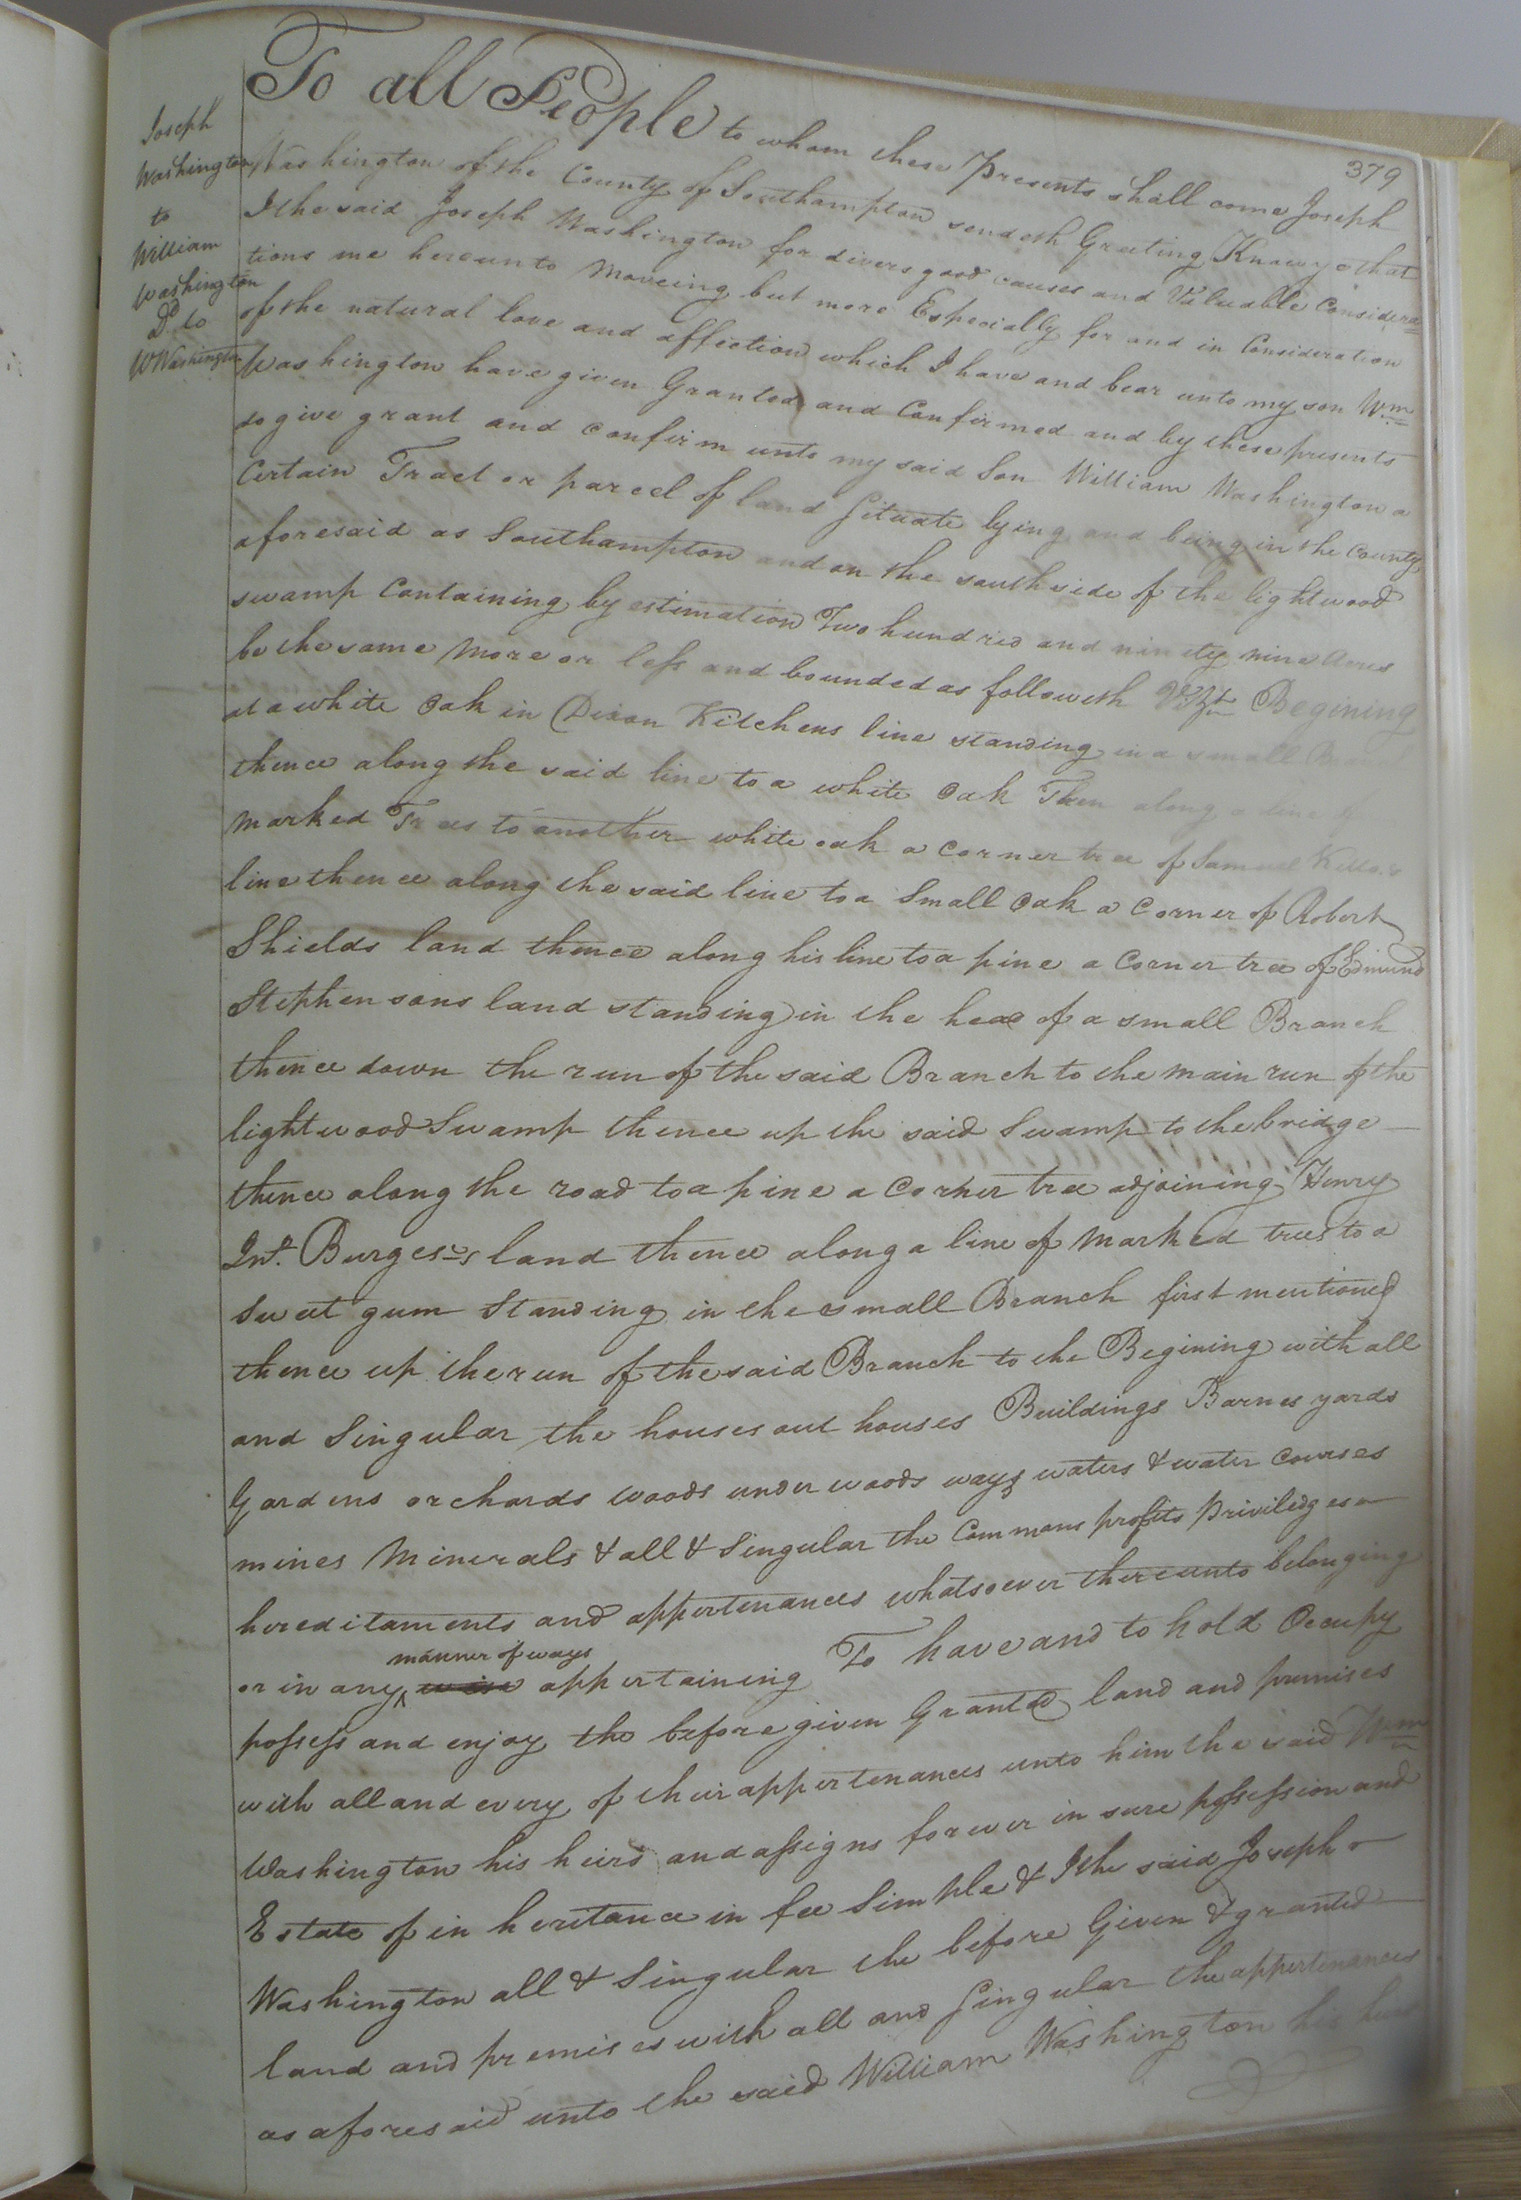 379
Joseph
Washington
to
William
Washington
Dd. to
W Washington
To all People to whom these Presents shall come Joseph
Washington of the County of Southampton sendeth Greeting Know ye that
I the said Joseph Washington for divers good causes and Valuable Considera
tions me hereunto Moveing but more Especially for and in Consideration
of the natural love and affection which I have and bear unto my son Wm
Washington have given Granted and Confirmed and by these presents
do give grant and confirm unto my said Son William Washington a
Certain Tract or parcel of land Situate lying and being in the County
aforesaid as Southampton and on the south side of the lightwood
swamp Containing by estimation Two hundred and ninety nine Acres
be the same More or less and bounded as followeth Vizt Begining
at a white Oak in Dixon Kitchens line standing in a small Branch
thence along the said line to a white Oak Then along a line of
marked Trees to another white oak a corner tree of Samuel
line thence along the said line to a Small Oak a Corner of Robert
Shields land thence along his line to a pine a Corner tree of Edmund
Stephensons land standing in the head of a small Branch
thence down the run of the said Branch to the main run of the
lightwood Swamp thence up the said Swamp to the bridge
thence along the road to a pine a Corner tree adjoining Henry
Jno. Burges's land thence along a line of Marked trees to a
Sweet gum Standing in the small Branch first mentioned
thence up the run of the said Branch to the Begining with all
and Singular the houses out houses Buildings Barnes yards
Gardens orchards woods under woods ways waters & water Courses
mines Minerals & all & Singular the Commons profits Priviledges
hereditaments and appertenances whatsoever thereunto belonging
manner of ways
or in any ^ wise appertaining To have and to hold Occupy
possess and enjoy the before given Granted land and premises
with all and every of their appertenances unto him the said Wm
Washington his heirs and assigns forever in sure possession and
Estate of in heritance in fee Simple & I the said Joseph
Washington all & Singular the before Given & granted
land and premises with all and Singular the appertenances
as aforesaid unto the said William Washington his heirs